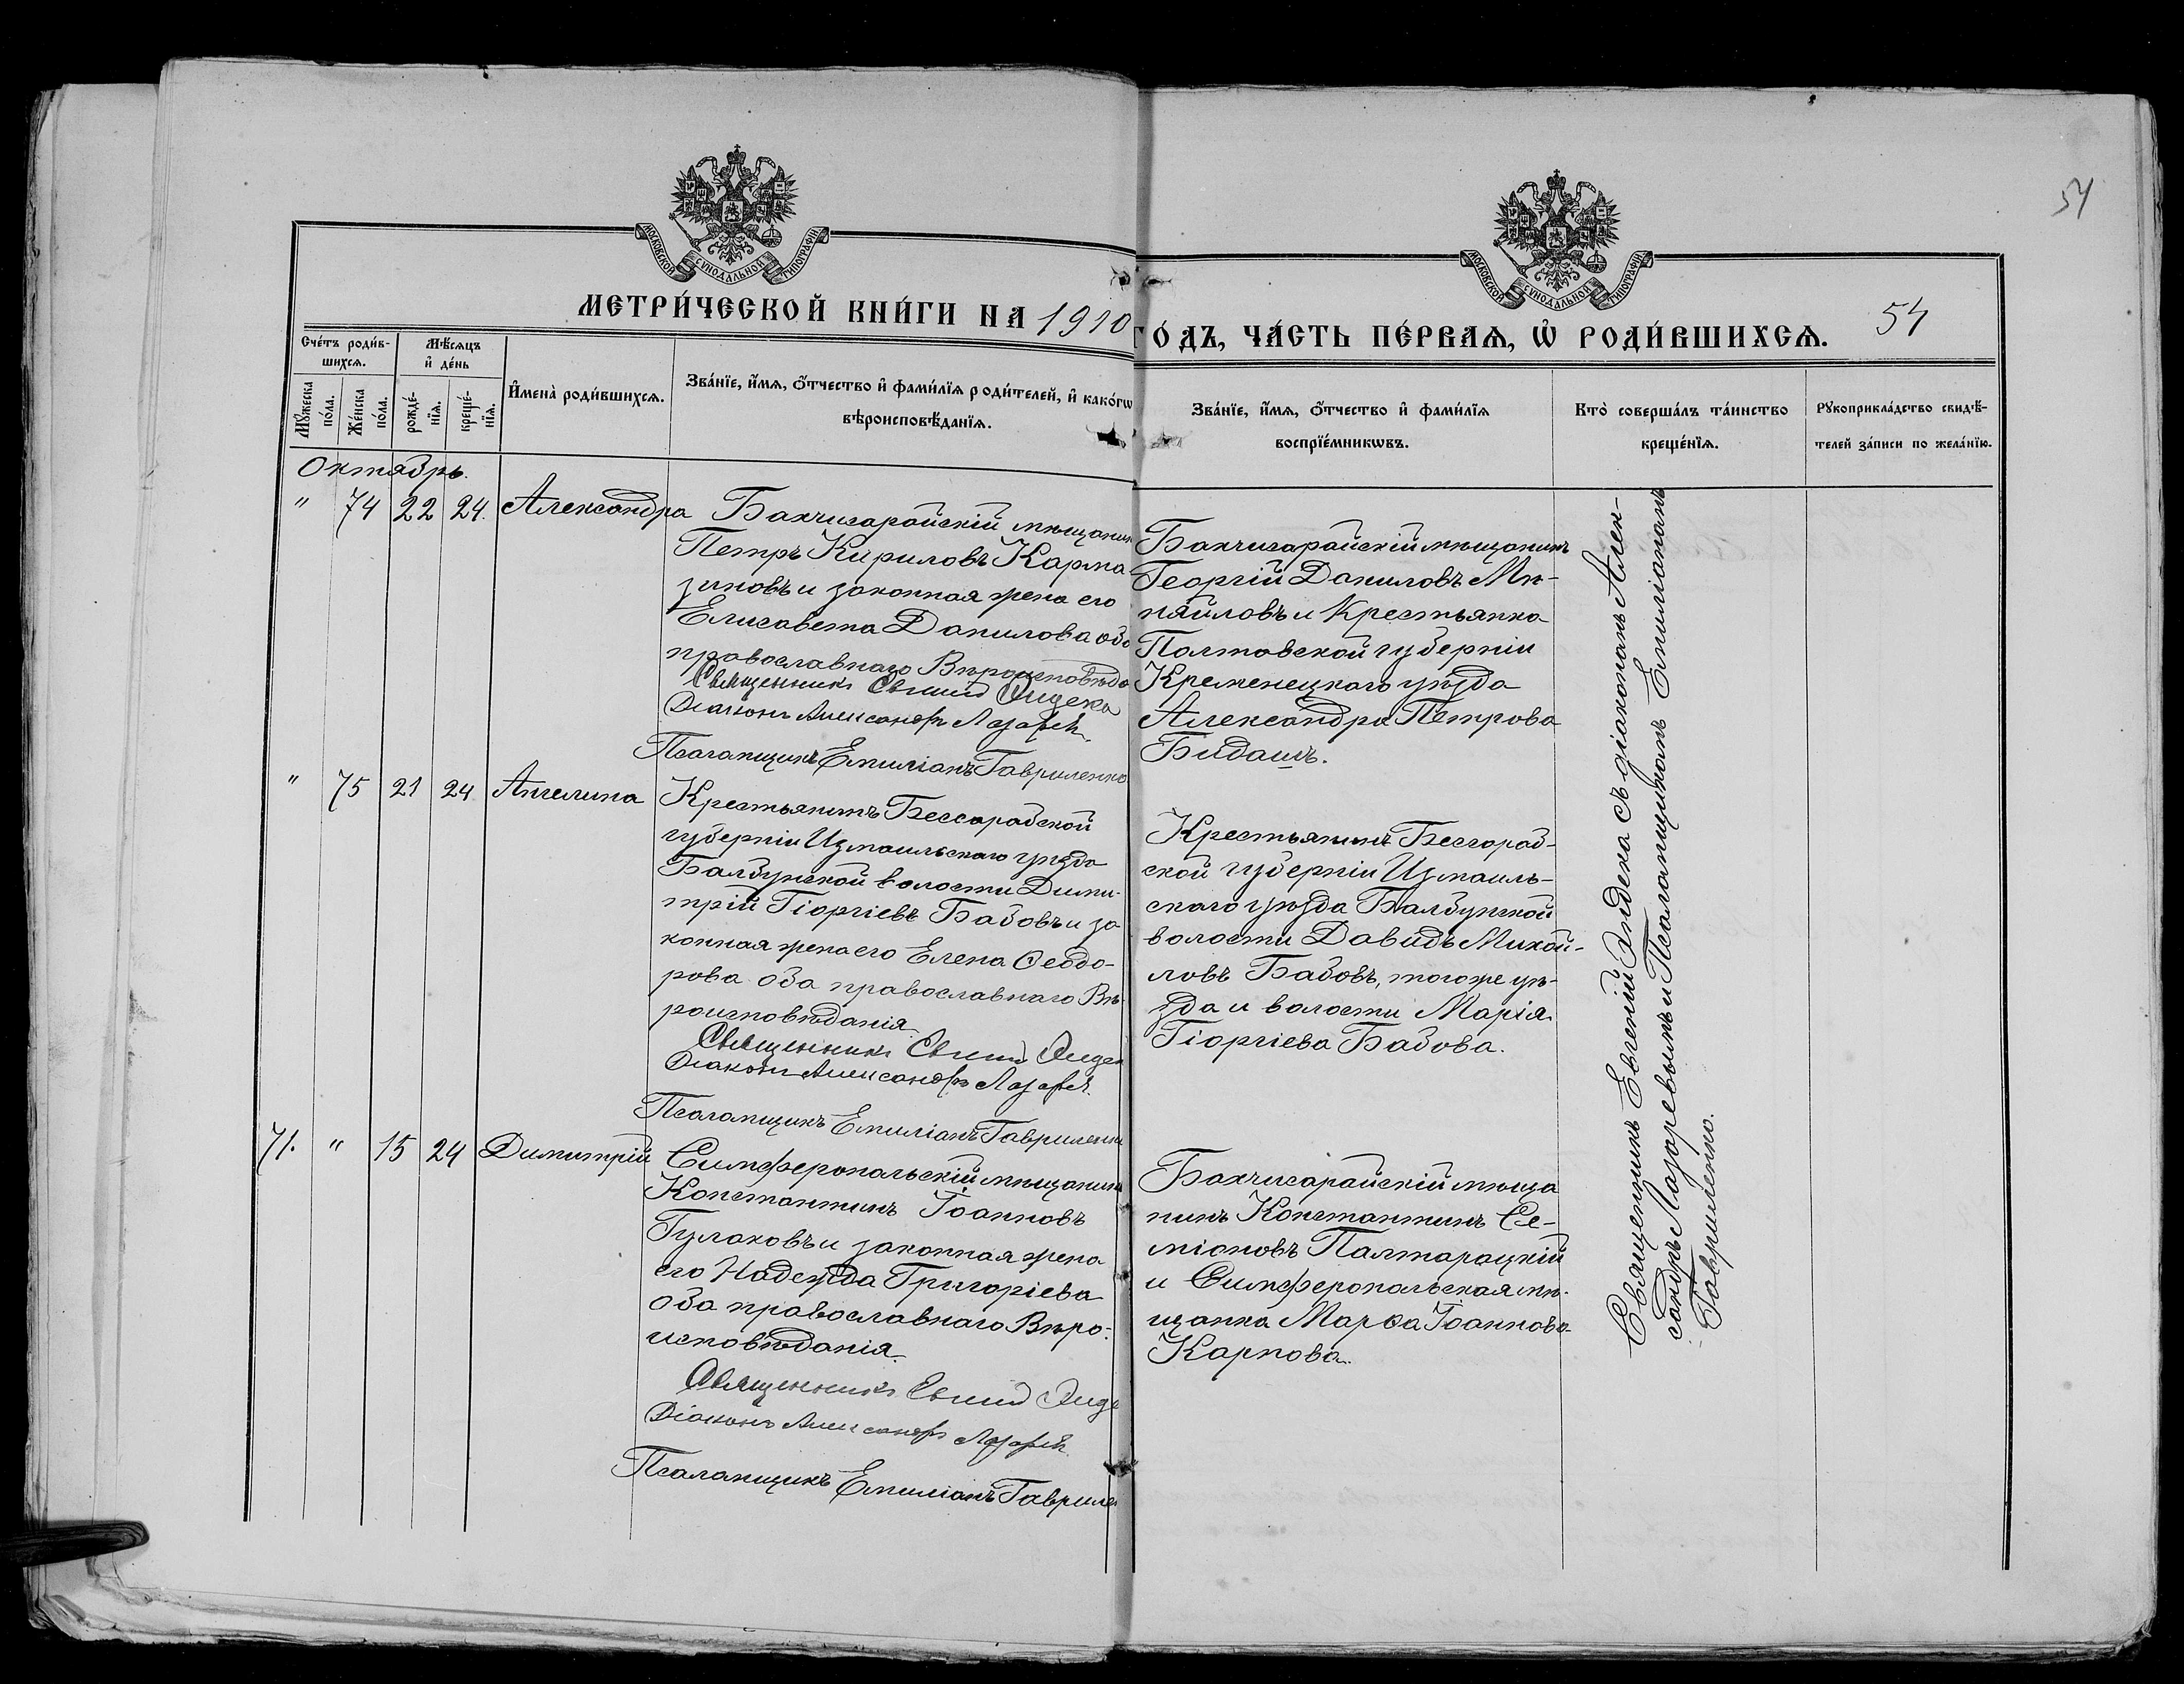 54
МОСКОВСКОЙ СѴНОДАЛЬНОЙ ТИПОГРАФІИ
МОСКОВСКОЙ СѴНОДАЛЬНОЙ ТИПОГРАФІИ
МЕТРИ́ЧЕСКОЙ КНИ́ГИ НА 1910
ГО́ДЪ, ЧА́СТЬ ПЕ́РВАѦ, Ѽ РОДИ́ВШИХСѦ. 54
Сче́тъ роди́в-
шихсѧ.
Мꙋ́жеска
по́ла.
Же́нска
по́ла.
Мѣ́сѧцъ
и҆ де́нь
рожде́-
нїѧ.
креще́-
нїѧ.
И҆мена̀ роди́вшихсѧ.
Зва́нїе, и҆́мѧ, ѻ҆́тчество и҆ фами́лїѧ роди́телей, и҆ како́гѡ
вѣроисповѣ́данїѧ.
Зва́нїе, и҆́мѧ, ѻ҆́тчество и҆ фами́лїѧ
воспрїе́мникѡвъ.
Кто̀ соверша́лъ та́инство
креще́нїѧ.
Рꙋкоприкла́дство свидѣ́-
телей за́писи по жела́нїю.
Октябрь.
" 74 22 24. Александра
Бахчисарайскій мѣщанин
Петръ Кириловъ Карма
зиновъ и законная жена его
Елисавета Данилова оба
православнаго Вѣроисповѣда
Священникъ Евгений Эндека
Діаконъ Александръ Лазарев
Псаломщикъ Емиліанъ Гавриленко
Бахчисарайскій мѣщанинъ
Георгій Даниловъ Ми-
няйловъ и Крестьянка
Полтовской губерніи
Кременецкаго уѣзда
Александра Петрова
Бидашъ.
" 75 21 24 Ангелина
Крестьянинъ Бессарабской
губерніи Измаильскаго уѣзда
Балбунской волости Дими-
трій Гіоргіевъ Бабовъ и за
конная жена его Елена Ѳеодо-
рова оба православнаго Вѣ
роисповѣданія
Священникъ Евгений Эндек
Діаконъ Александръ Лазарев.
Псаломщикъ Емиліанъ Гавриленк
Крестьянинъ Бессараб-
ской губерніи Измаиль-
скаго уѣзда Балбунской
волости Давидъ Михай-
ловъ Бабовъ, тогоже уѣ-
зда и волости Марія
Гіоргіева Бабова.
71. " 15 24 Димитрій
Симферопольскій мѣщанин
Константинъ Іоанновъ
Гулаковъ и законная жена
его Надежда Григоріева
оба православнаго Вѣро-
исповѣданія.
Священникъ Евгений Энде
Діаконъ Александръ Лазарев
Псаломщикъ Емиліанъ Гаврилен
Бахчисарайскій мѣща
нинъ Константинъ Се-
міоновъ Палтарацкій
и Симферопольская мѣ-
щанка Марѳа Іоаннова
Карпова.
Священникъ Евгеній Эндека съ діакономъ Алек-
сандръ Лазаревымъ и Псаломщикомъ Емиліаномъ
Гавриленко.